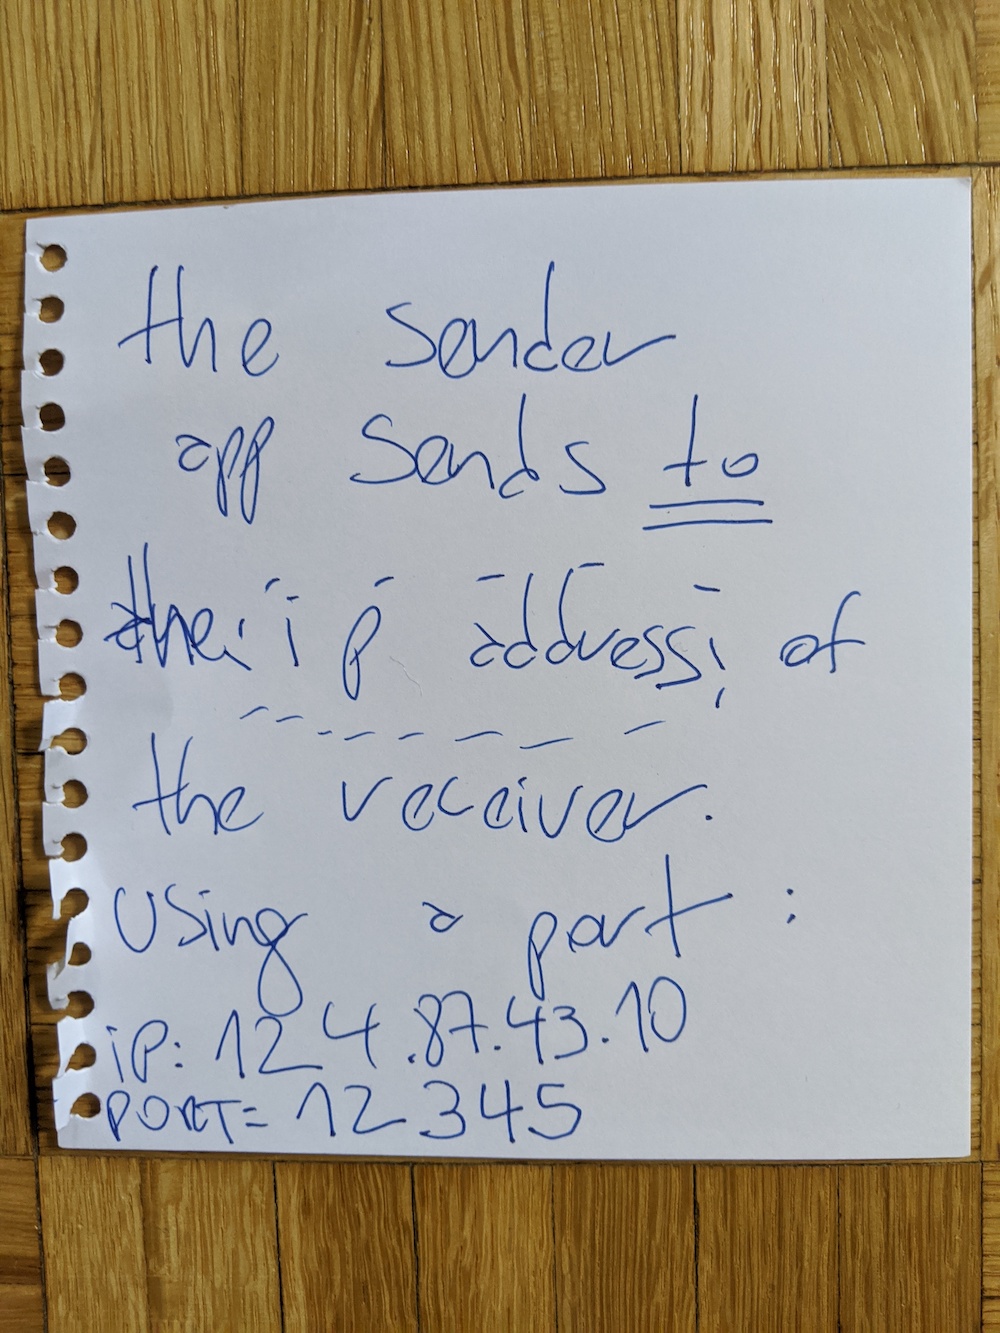 the sender
app sends to
the ip address of
the receiver.
Using a port :
iP: 124.87.43.10
PORT= 12345